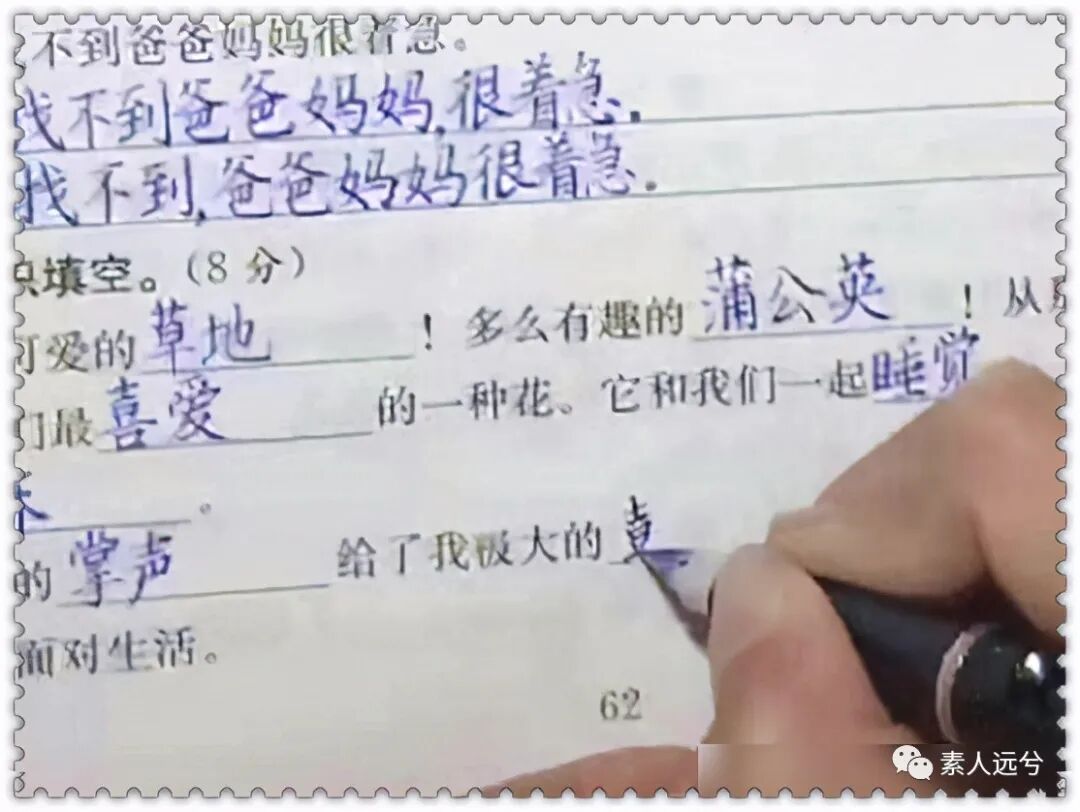 不到爸爸妈妈很着急。
找不到爸爸妈妈,很着急.
找不到,爸爸妈妈很着急.
识填空。(8分)
可爱的草地!多么有趣的蒲公英!从
们最喜爱的一种花。它和我们一起睡觉
。
的掌声给了我极大的
面对生活。
62
素人远兮